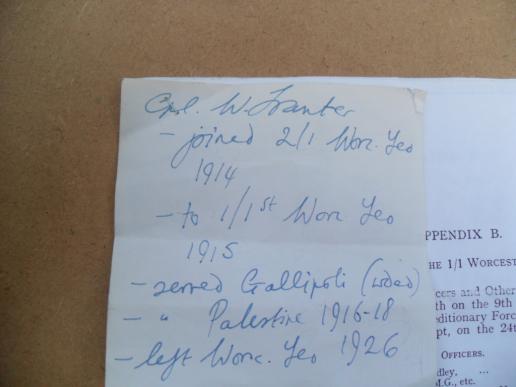 Cpl. W. Tranter
- joined 2/1 Worc. Yeo
1914
- to 1/1st Worc Yeo
1915
- served Gallipoli (wded)
- " Palestine 1916-18
- left Worc. Yeo 1926
PPENDIX B.
HE 1/1 WORCEST
cers and Other
th on the 9th
editionary Forc
pt, on the 24t
OFFICERS.
dley, ...
M.G., etc.